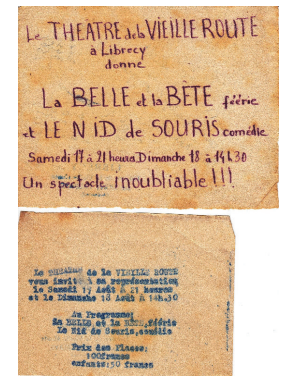 Le THEATRE de la VIEILLE ROUTE
à Librecy
donne
LA BELLE et la BÊTE féérie
et LE NiD de SOURIS comédie
Samedi 17 à 21 heures Dimanche 18 à 14h30
Un spectacle inoubliable !!!
Le THEATRE de la VIEILLE ROUTE
vous invite à sa représentation
le Samedi 17 Août à 21 heures
et le Dimanche 18 Août à 14h.30
Au Programme:
La BELLE et la BETE, féérie
Le Nid de Souris, comédie
Prix des Places:
100francs
enfants: 50 francs